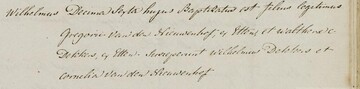 Wilhelmus Decima Sexta hujus Baptizatus est filius legitimus
Gregorii Van den Nieuwenhof, ex Etten et Walthera
Dekkers, ex Etten. Susceperunt Wilhelmus Dekkers et
Cornelia Van den Nieuwenhof